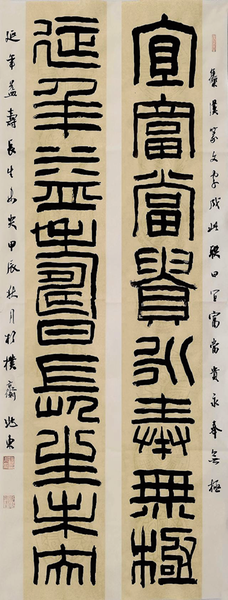 集漢篆文字成此聯曰宜富當貴永奉無極
宜富當貴永奉無極
延年益壽長生未央
延年益壽長生未央甲辰秋月於樸齋兆東